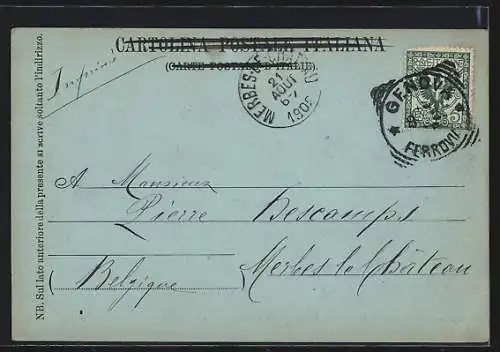 CARTOLINA POSTALE ITALIANA
(CARTE POSTALE D'ITALIE)
NB. Sul lato anteriore della presente si scrive soltanto l'indirizzo.
MERBES
21
AOUT
6-
190
GENOVA
FERROVIA
A Monsieur
Pierre Descamps
Merbes le Château
(Belgique)